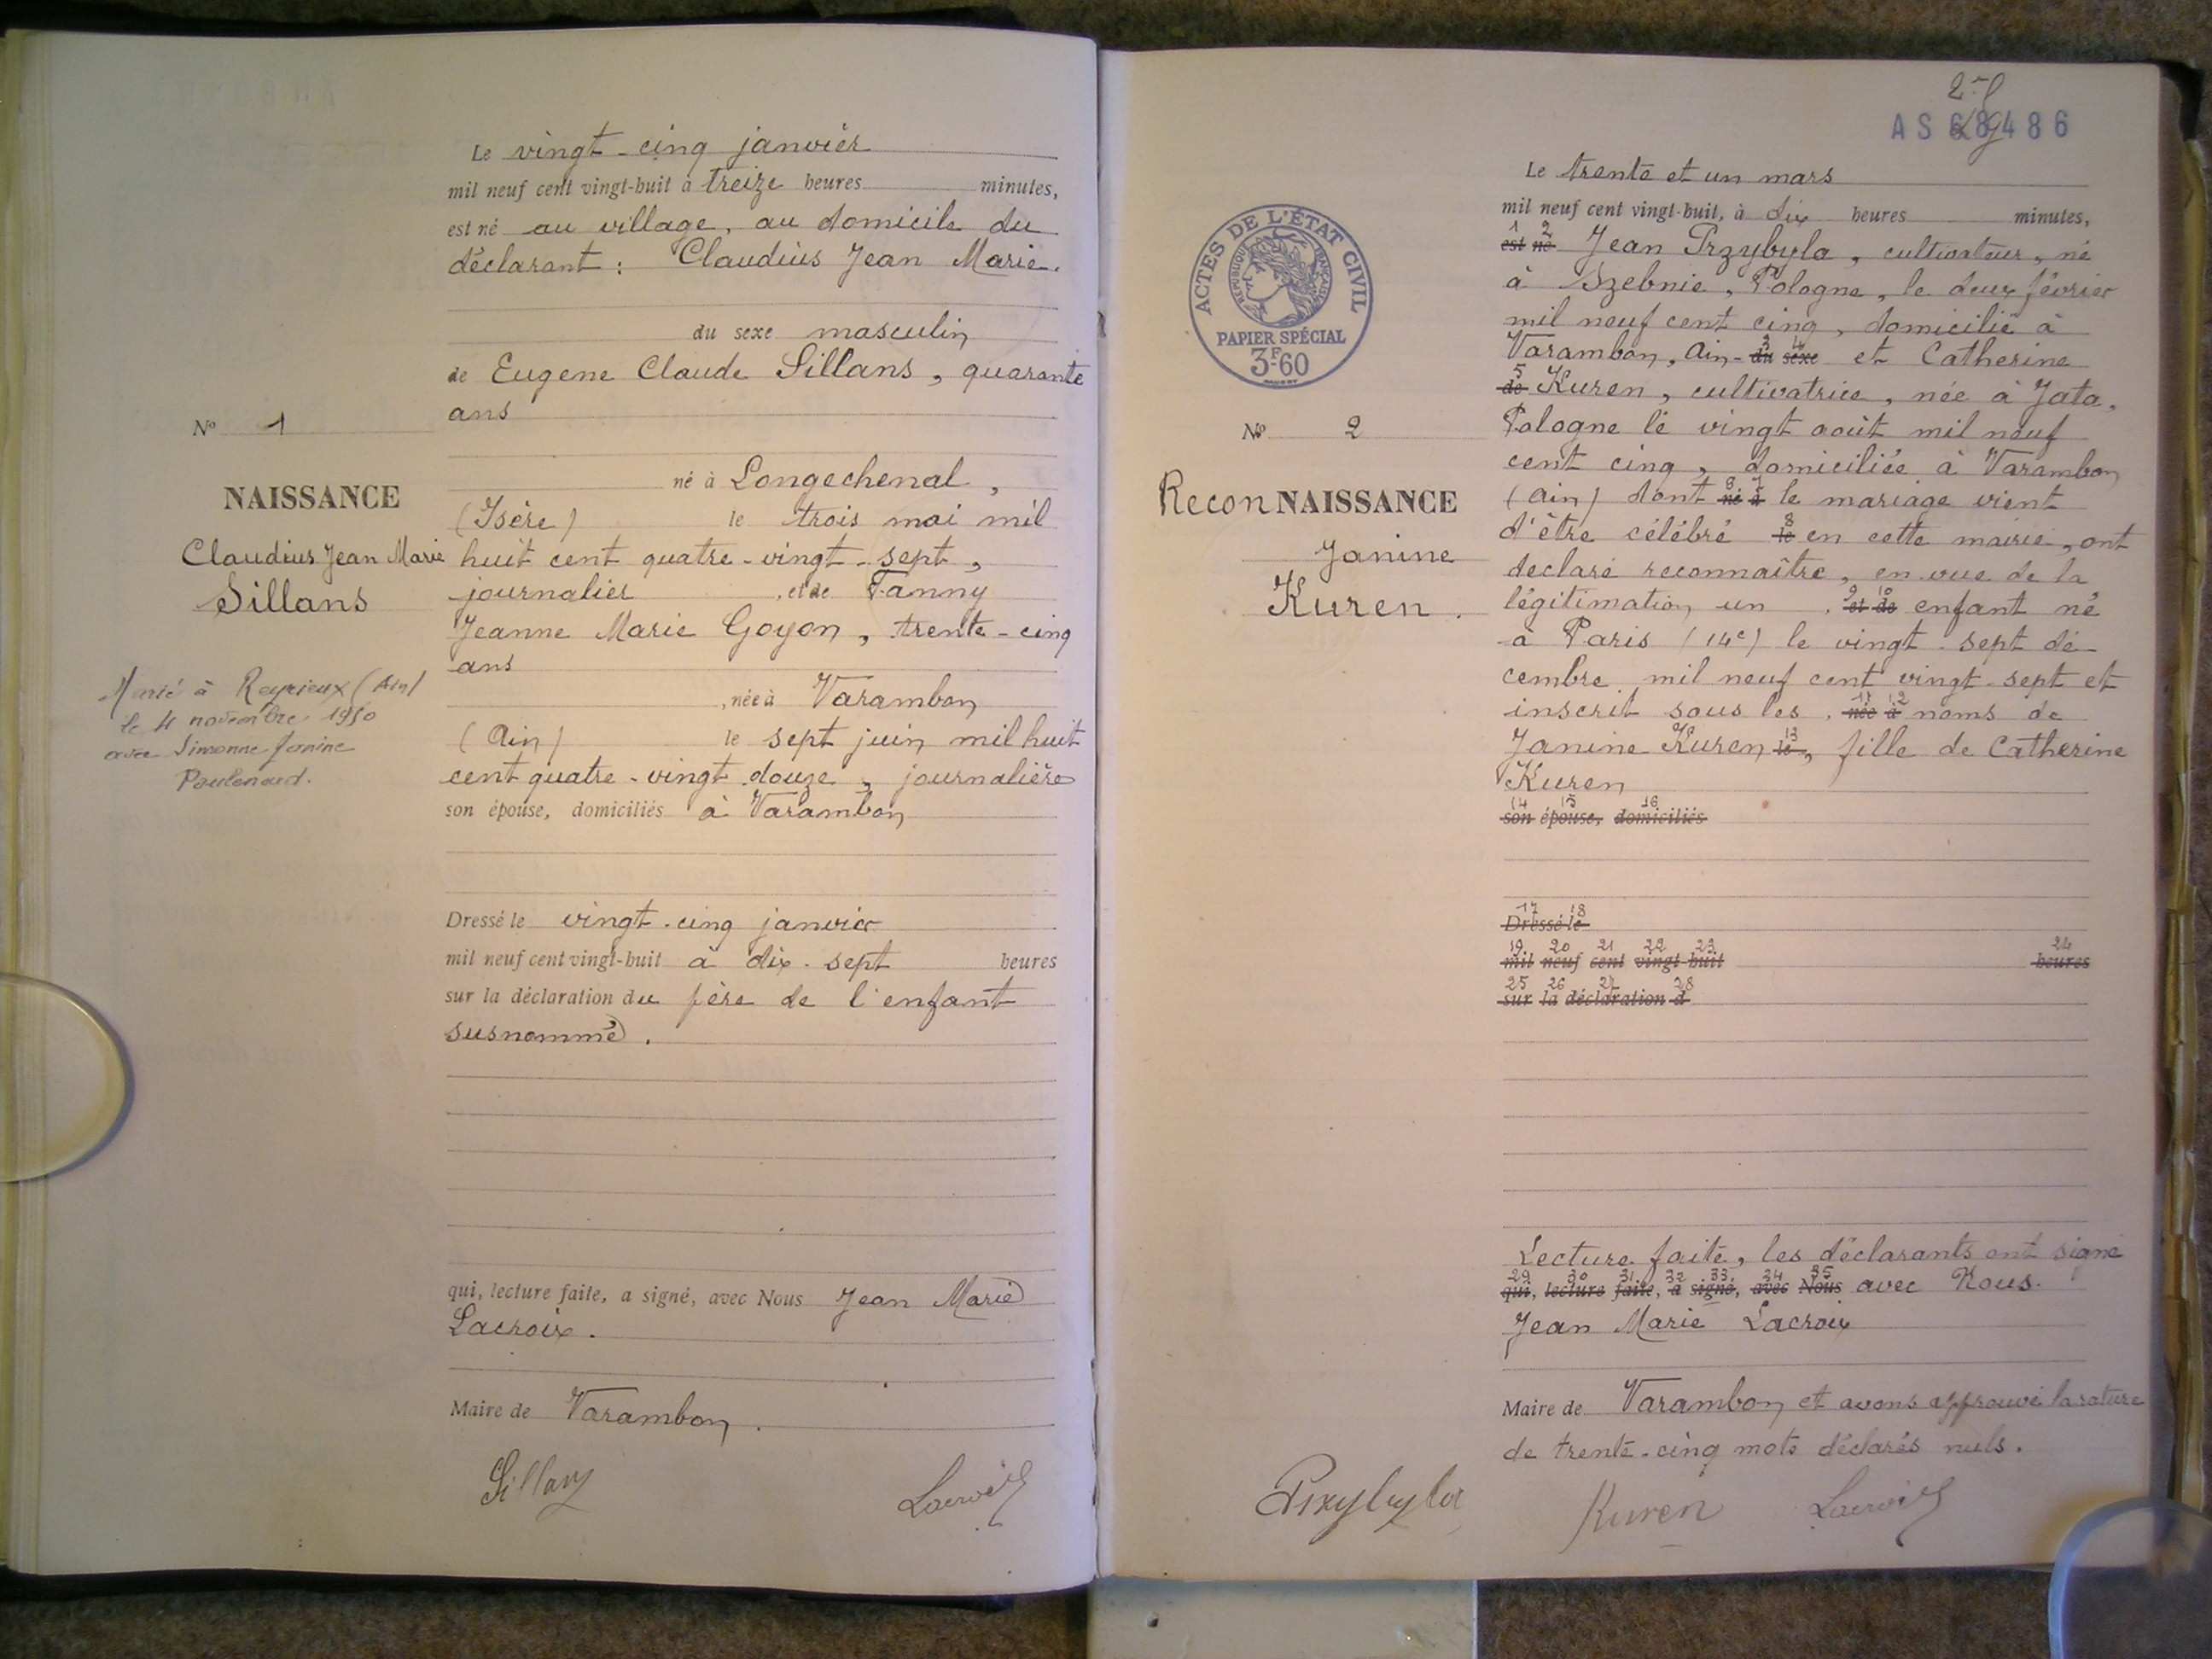 Le vingt-cinq janvier
mil neuf cent vingt-huit à treize heures minutes,
est né au village, au domicile du
déclarant : Claudius Jean Marie.
du sexe masculin
de Eugène Claude Sillans, quarante
ans
né à Longechenal,
(Isère) le trois mai mil
huit cent quatre-vingt-sept,
journalier , et de Fanny
Jeanne Marie Goyon, trente-cinq
ans
, née à Varambon
(Ain) le sept juin mil huit
cent quatre-vingt-douze, journalière
son épouse, domiciliés à Varambon
Dressé le vingt-cinq janvier
mil neuf cent vingt-huit à dix-sept heures
sur la déclaration du père de l'enfant
susnommé.
qui, lecture faite, a signé, avec Nous Jean Marie
Lacroix.
Maire de Varambon.
Sillans Lacroix
N° 1
NAISSANCE
Claudius Jean Marie
Sillans
Marié à Reyrieux (Ain)
le 4 novembre 1950
avec Simonne Janine
AS 68486
Le trente et un mars
mil neuf cent vingt-huit, à dix heures minutes,
1 2
est né Jean Przybyla, cultivateur, né
à Szebnie, Pologne, le deux février
mil neuf cent cinq, domicilié à
3 4
Varambon, Ain - du sexe et Catherine
5
de Kuren, cultivatrice, née à Jata,
Pologne le vingt août mil neuf
cent cinq, domiciliée à Varambon
6 7
(Ain) dont né à le mariage vient
8
d'être célébré le en cette mairie, ont
declaré reconnaître, en vue de la
9 10
légitimation un , et de enfant né
à Paris (14e) le vingt-sept dé-
cembre mil neuf cent vingt-sept et
11 12
inscrit sous les , née à noms de
13
Janine Kuren le, fille de Catherine
Kuren
14 15 16
son épouse, domiciliés
17 18
Dressé le
19 20 21 22 23 24
mil neuf cent vingt-huit heures
25 26 27 28
sur la déclaration d
Lecture faite, les déclarants ont signé
29 30 31 32 33 34 35
qui, lecture faite, a signé, avec Nous avec Nous.
Jean Marie Lacroix
Maire de Varambon et avons approuvé la rature
de trente-cinq mots déclarés nuls.
Przybyla Kuren Lacroix
ACTES DE L'ÉTAT CIVIL
RÉPUBLIQUE FRANÇAISE
PAPIER SPÉCIAL
3F60
N° 2
ReconNAISSANCE
Janine
Kuren.